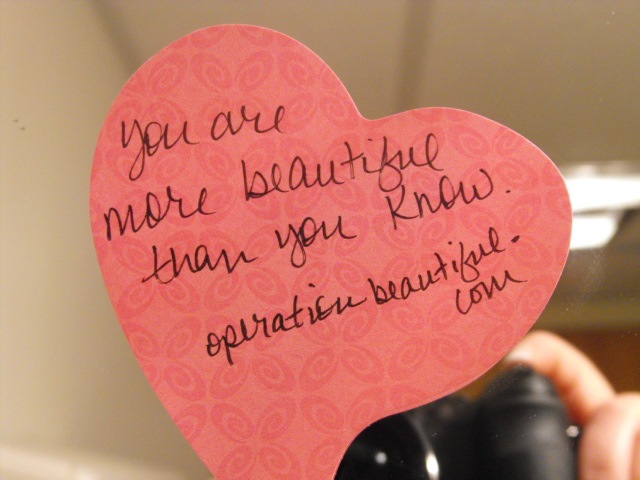 you are
more beautiful
than you know.
operation beautiful.
com